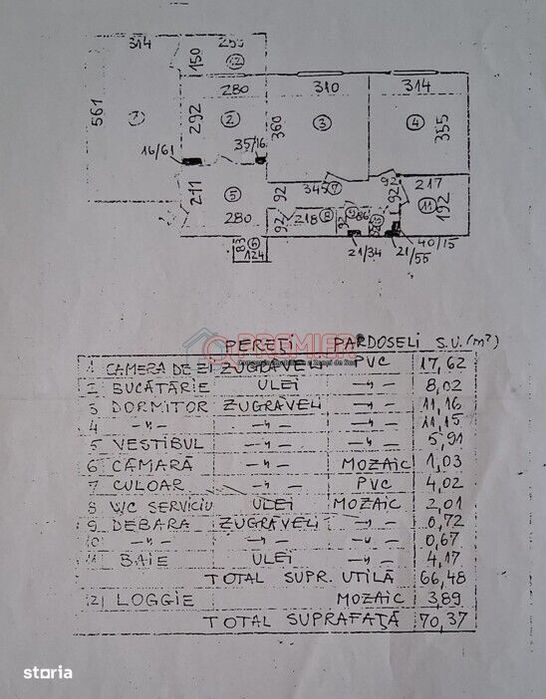 314
255
150
12
561
1
280
310
314
292
2
360
3
4
355
16/61
35/16
211
5
92
345
7
92
217
280
218
8
92
92
9
86
92
11
192
83
6
124
21/34
21/55
40/15
PREMIER
PEREȚI PARDOSELI S.U. (m²)
1 CAMERA DE ZI ZUGRĂVELI PVC 17,62
2 BUCĂTĂRIE ULEI —"— 8,02
3 DORMITOR ZUGRĂVELI —"— 11,16
4 —"— —"— —"— 11,15
5 VESTIBUL —"— —"— 5,91
6 CĂMARĂ —"— MOZAIC 1,03
7 CULOAR —"— PVC 4,02
8 WC SERVICIU ULEI MOZAIC 2,01
9 DEBARA ZUGRĂVELI —"— 0,72
10 —"— —"— —"— 0,67
11 BAIE ULEI —"— 4,17
TOTAL SUPR. UTILĂ 66,48
12) LOGGIE MOZAIC 3,89
TOTAL SUPRAFAȚĂ 70,37
storia